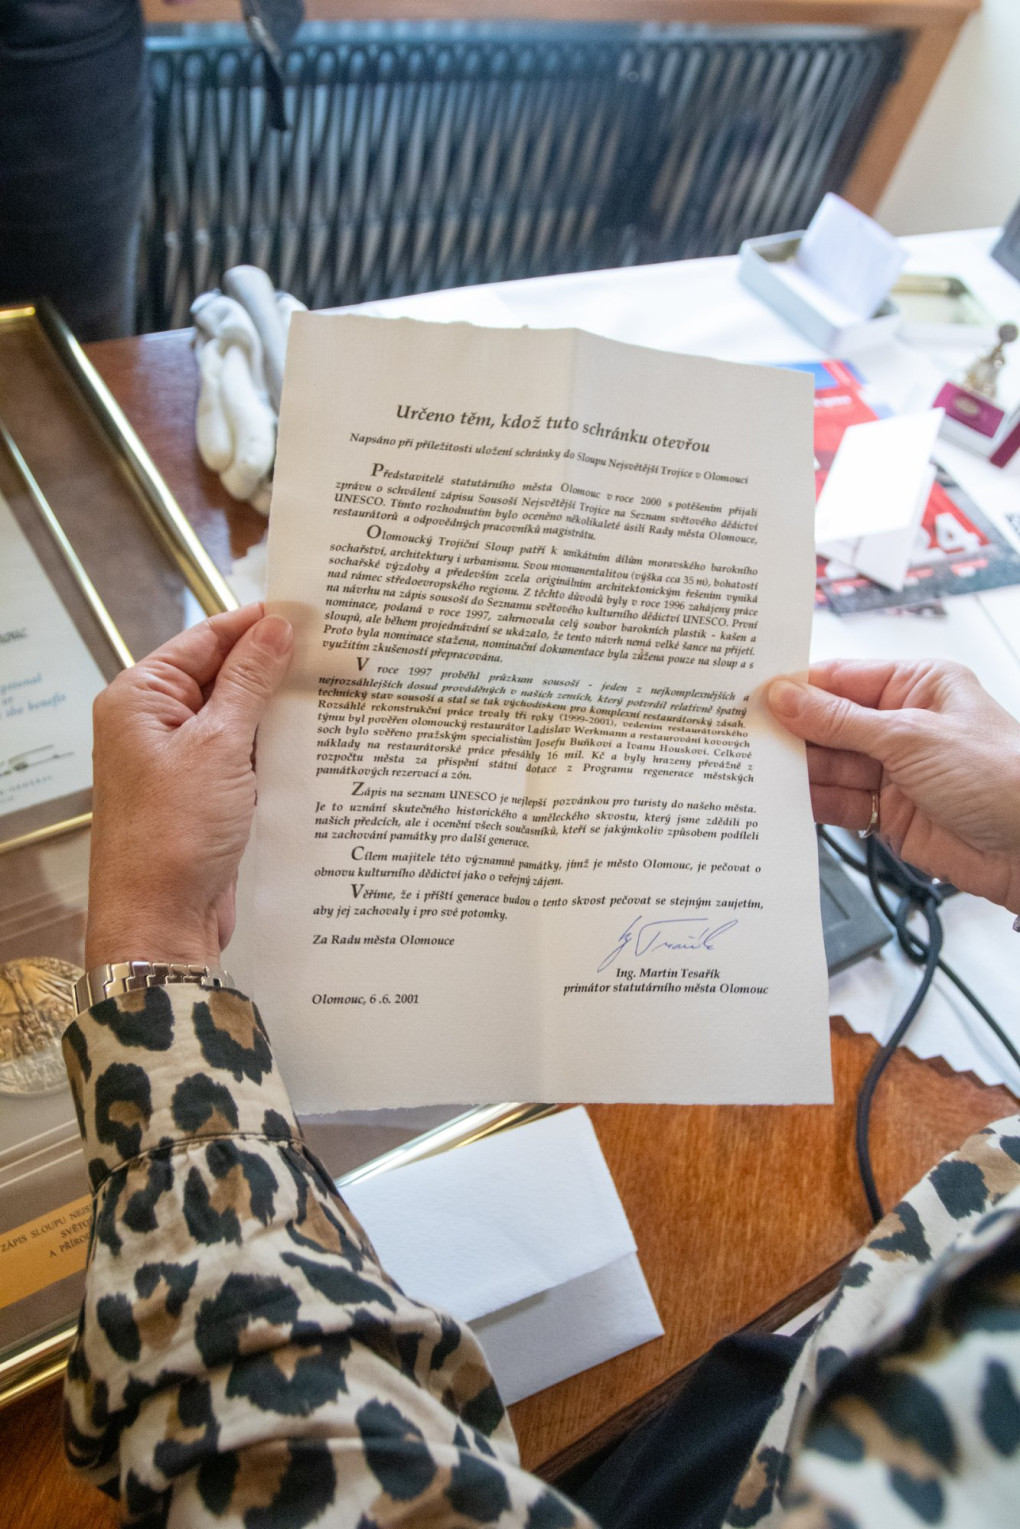 Určeno těm, kdož tuto schránku otevřou
Napsáno při příležitosti uložení schránky do Sloupu Nejsvětější Trojice v Olomouci
Představitelé statutárního města Olomouc v roce 2000 s potěšením přijali
zprávu o schválení zápisu Sousoší Nejsvětější Trojice na Seznam světového dědictví
UNESCO. Tímto rozhodnutím bylo oceněno několikaleté úsilí Rady města Olomouce,
restaurátorů a odpovědných pracovníků magistrátu.
Olomoucký Trojiční Sloup patří k unikátním dílům moravského barokního
sochařství, architektury i urbanismu. Svou monumentalitou (výška cca 35 m), bohatostí
sochařské výzdoby a především zcela originálním architektonickým řešením vyniká
nad rámec středoevropského regionu. Z těchto důvodů byly v roce 1996 zahájeny práce
na návrhu na zápis sousoší do Seznamu světového kulturního dědictví UNESCO. První
nominace, podaná v roce 1997, zahrnovala celý soubor barokních plastik - kašen a
sloupů, ale během projednávání se ukázalo, že tento návrh nemá velké šance na přijetí.
Proto byla nominace stažena, nominační dokumentace byla zúžena pouze na sloup a s
využitím zkušeností přepracována.
V roce 1997 proběhl průzkum sousoší - jeden z nejkomplexnějších a
nejrozsáhlejších dosud prováděných v našich zemích, který potvrdil relativně špatný
technický stav sousoší a stal se tak východiskem pro komplexní restaurátorský zásah.
Rozsáhlé rekonstrukční práce trvaly tři roky (1999-2001), vedením restaurátorského
týmu byl pověřen olomoucký restaurátor Ladislav Werkmann a restaurování kovových
soch bylo svěřeno pražským specialistům Josefu Buňkovi a Ivanu Houskovi. Celkové
náklady na restaurátorské práce přesáhly 16 mil. Kč a byly hrazeny převážně z
rozpočtu města za přispění státní dotace z Programu regenerace městských
památkových rezervací a zón.
Zápis na seznam UNESCO je nejlepší pozvánkou pro turisty do našeho města.
Je to uznání skutečného historického a uměleckého skvostu, který jsme zdědili po
našich předcích, ale i ocenění všech současníků, kteří se jakýmkoliv způsobem podíleli
na zachování památky pro další generace.
Cílem majitele této významné památky, jímž je město Olomouc, je pečovat o
obnovu kulturního dědictví jako o veřejný zájem.
Věříme, že i příští generace budou o tento skvost pečovat se stejným zaujetím,
aby jej zachovaly i pro své potomky.
Za Radu města Olomouce
Ing. Martin Tesařík
primátor statutárního města Olomouc
Olomouc, 6 .6. 2001
ZÁPIS SLOUPU NEJS
SVĚTO
A PŘÍRO
24